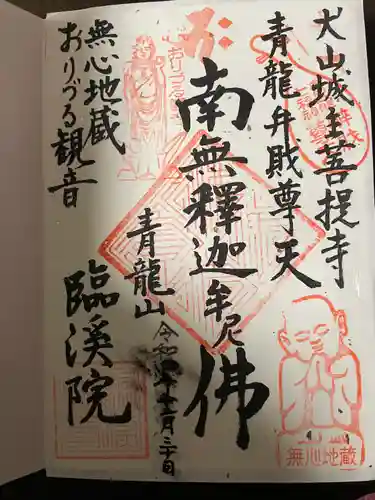 犬山城主菩提寺
青龍弁財尊天
南無釋迦牟尼佛
青龍山
無心地蔵
おりづる観音
臨溪院
おりづる
無心地蔵